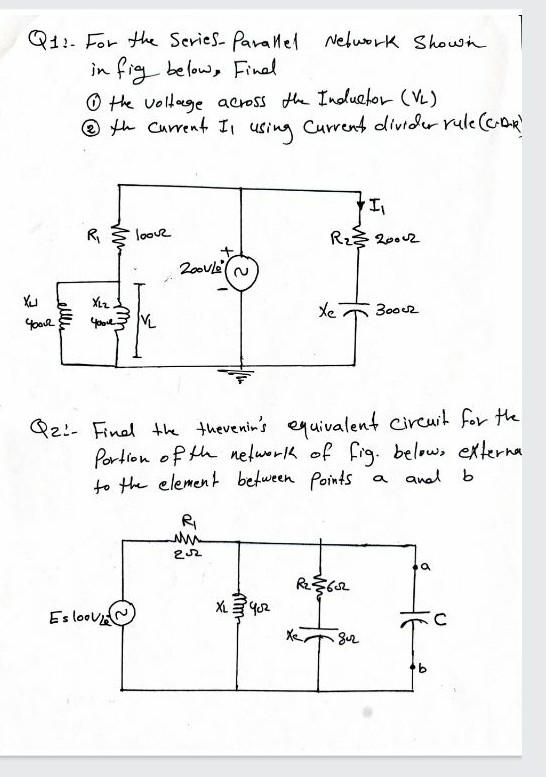 Q1:- For the Series-Parallel Network Shown
in fig below, Find
① the voltage across the Inductor (VL)
② the current I1 using Current divider rule (C.D.R)
I1
R1 100Ω
R2 200Ω
+
200V∠0°
-
XL1
400Ω
XL2
400Ω
VL
Xc 300Ω
Q2:- Find the thevenin's equivalent circuit for the
Portion of th network of fig. below, externa
to the element between Points a and b
R1
2Ω
a
R2 6Ω
E=100V∠0
XL 4Ω
C
Xc 8Ω
b